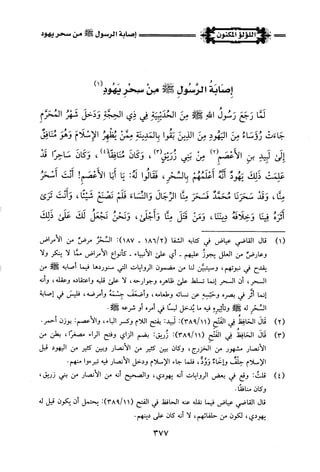 اللؤلؤ المكنون
إصابة الرسول ﷺ من سحر يهود
إِصَابَةُ الرَّسُولِ ﷺ مِنْ سِحْرِ يَهُودَ (١)
لَمَّا رَجَعَ رَسُولُ اللهِ ﷺ مِنَ الحُدَيْبِيَةِ فِي ذِي الحِجَّةِ وَدَخَلَ شَهْرُ المُحَرَّمِ
جَاءَتْ رُؤَسَاءُ مِنَ اليَهُودِ مِنَ الذِينَ بَقُوا بِالمَدِينَةِ مِمَّنْ يُظْهِرُ الإِسْلَامَ وَهُوَ مُنَافِقٌ
إِلَى لَبِيدِ بنِ الأَعْصَمِ (٢) مِنْ بَنِي زُرَيْقٍ (٣)، وَكَانَ مُنَافِقًا (٤)، وَكَانَ سَاحِرًا قَدْ
عَلِمَتْ ذَلِكَ يَهُودُ أَنَّهُ أَعْلَمُهُمْ بِالسِّحْرِ، فَقَالُوا لَهُ: يَا أَبَا الأَعْصَمِ! أَنْتَ أَسْحَرُ
مِنَّا، وَقَدْ سَحَرْنَا مُحَمَّدًا فَسَحَرَهُ مِنَّا الرِّجَالُ وَالنِّسَاءُ فَلَمْ نَصْنَعْ شَيْئًا، وَأَنْتَ تَرَى
أَثَرَهُ فِينَا وَخِلَافَهُ دِينَنَا، وَمَنْ قَتَلَ مِنَّا وَأَجْلَى، وَنَحْنُ نَجْعَلُ لَكَ عَلَى ذَلِكَ
(١) قال القاضي عياض في كتابه الشفا (١٨٦/٢ - ١٨٧): السِّحْرُ مرضٌ من الأمراض
وعارضٌ من العلل يجوزُ عليهم - أي على الأنبياء - كأنواع الأمراض ممَّا لا ينكر ولا
يقدح في نبوتهم، وسيتبَيَّن لنا من مضمون الروايات التي سنوردها فيما أصابه ﷺ من
السحر، أن السحر إنما تسلط على ظاهره وجوارحه، لا على قلبه واعتقاده وعقله، وأنه
إنما أثَّر في بصره وحَبَسَه عن نسائه وطعامه، وأضعَفَ جِسْمَهُ وأمرضه، فليس في إصابة
السحر له ﷺ وتأثيره فيه ما يُدخل لبسًا في أمره أو شرعه ﷺ.
(٢) قال الحَافِظُ في الفَتْحِ (٣٨٩/١١): لَبِيد: بفتح اللام وكسر الباء، والأعصم: بوزن أحمر.
(٣) قال الحَافِظُ في الفَتْحِ (٣٨٩/١١): زُريق: بضم الزاي وفتح الراء مصغرًا، بطن من
الأنصار مشهور من الخزرج، وكان بين كثير من الأنصار وبين كثير من اليهود قبل
الإسلام حِلْف وإخَاءٌ وَوُدٌّ، فلما جاء الإسلام ودخل الأنصار فيه تبرءوا منهم.
(٤) قلتُ: وقع في بعض الروايات أنه يهودي، والصحيح أنه من الأنصار من بني زريق،
وكان منافقًا.
قال القاضي عياض فيما نقله عنه الحافظ في الفتح (٣٨٩/١١): يحتمل أن يكون قيل له
يهودي، لكون من حلفائهم، لا أنه كان على دينهم.
٣٧٧